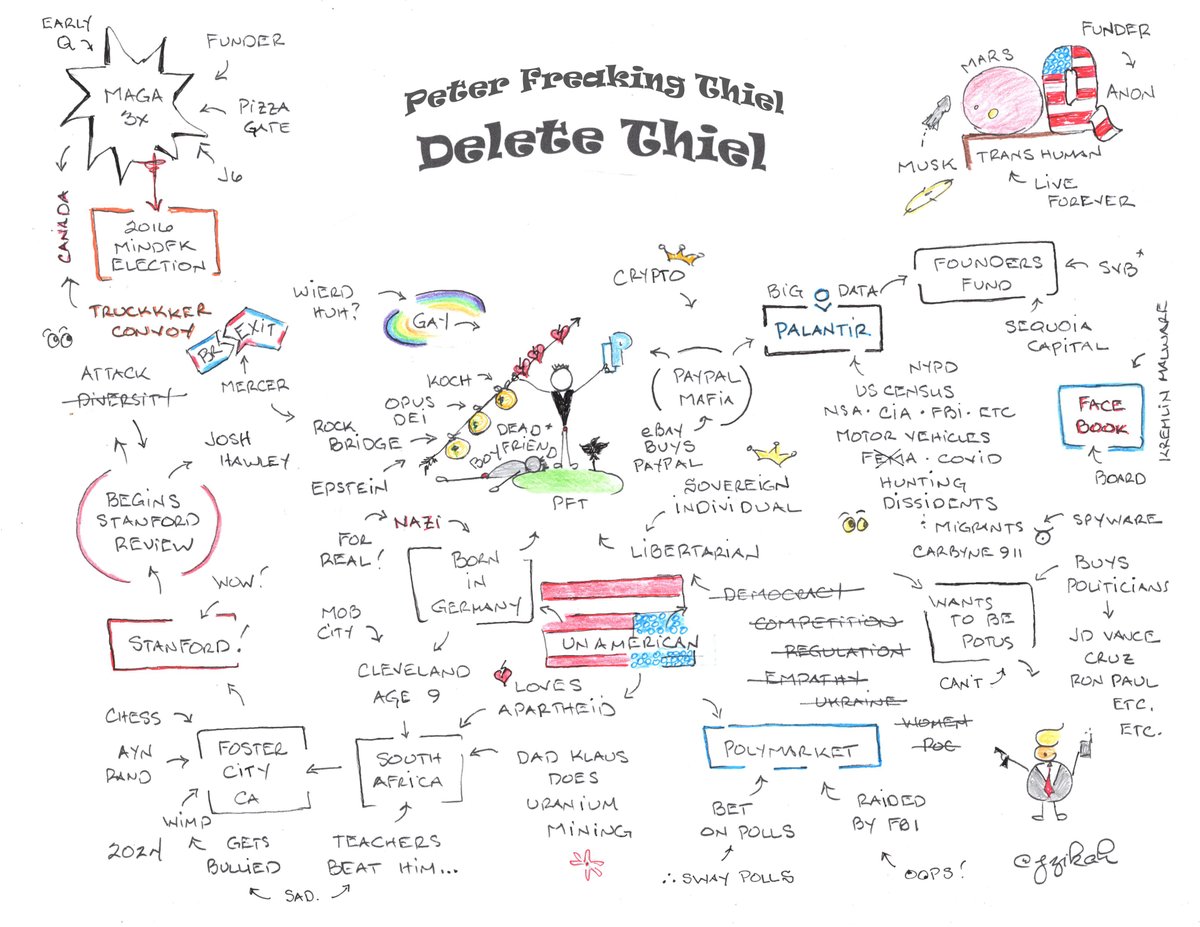 Peter Freaking Thiel
Delete Thiel
EARLY
Q
MAGA
3X
FUNDER
PIZZA
GATE
J6
CANADA
2016
MINDFK
ELECTION
TRUCKKKER
CONVOY
BR
EXIT
MERCER
ATTACK
DIVERSITY
JOSH
HAWLEY
BEGINS
STANFORD
REVIEW
WOW!
STANFORD!
CHESS
AYN
RAND
WIMP
FOSTER
CITY
CA
2024
GETS
BULLIED
SAD.
TEACHERS
BEAT HIM...
SOUTH
AFRICA
CLEVELAND
AGE 9
MOB
CITY
FOR
REAL!
NAZI
BORN
IN
GERMANY
LOVES
APARTHEID
DAD KLAUS
DOES
URANIUM
MINING
WIERD
HUH?
GAY
KOCH
OPUS
DEI
ROCK
BRIDGE
EPSTEIN
DEAD
BOYFRIEND
P
PFT
UNAMERICAN
CRYPTO
PAYPAL
MAFIA
eBAY
BUYS
PAYPAL
SOVEREIGN
INDIVIDUAL
LIBERTARIAN
DEMOCRACY
COMPETITION
REGULATION
EMPATHY
UKRAINE
WOMEN
POC
POLYMARKET
BET
ON POLLS
∴ SWAY POLLS
RAIDED
BY FBI
OOPS!
BIG DATA
PALANTIR
NYPD
US CENSUS
NSA · CIA · FBI · ETC
MOTOR VEHICLES
FEMA · COVID
HUNTING
DISSIDENTS
: MIGRANTS
CARBYNE 911
SPYWARE
FOUNDERS
FUND
SVB*
SEQUOIA
CAPITAL
KREMLIN MALWARE
FACE
BOOK
BOARD
WANTS
TO BE
POTUS
CAN'T
BUYS
POLITICIANS
JD VANCE
CRUZ
RON PAUL
ETC.
ETC.
MARS
Q
FUNDER
ANON
MUSK
TRANS HUMAN
LIVE
FOREVER
@jzikah